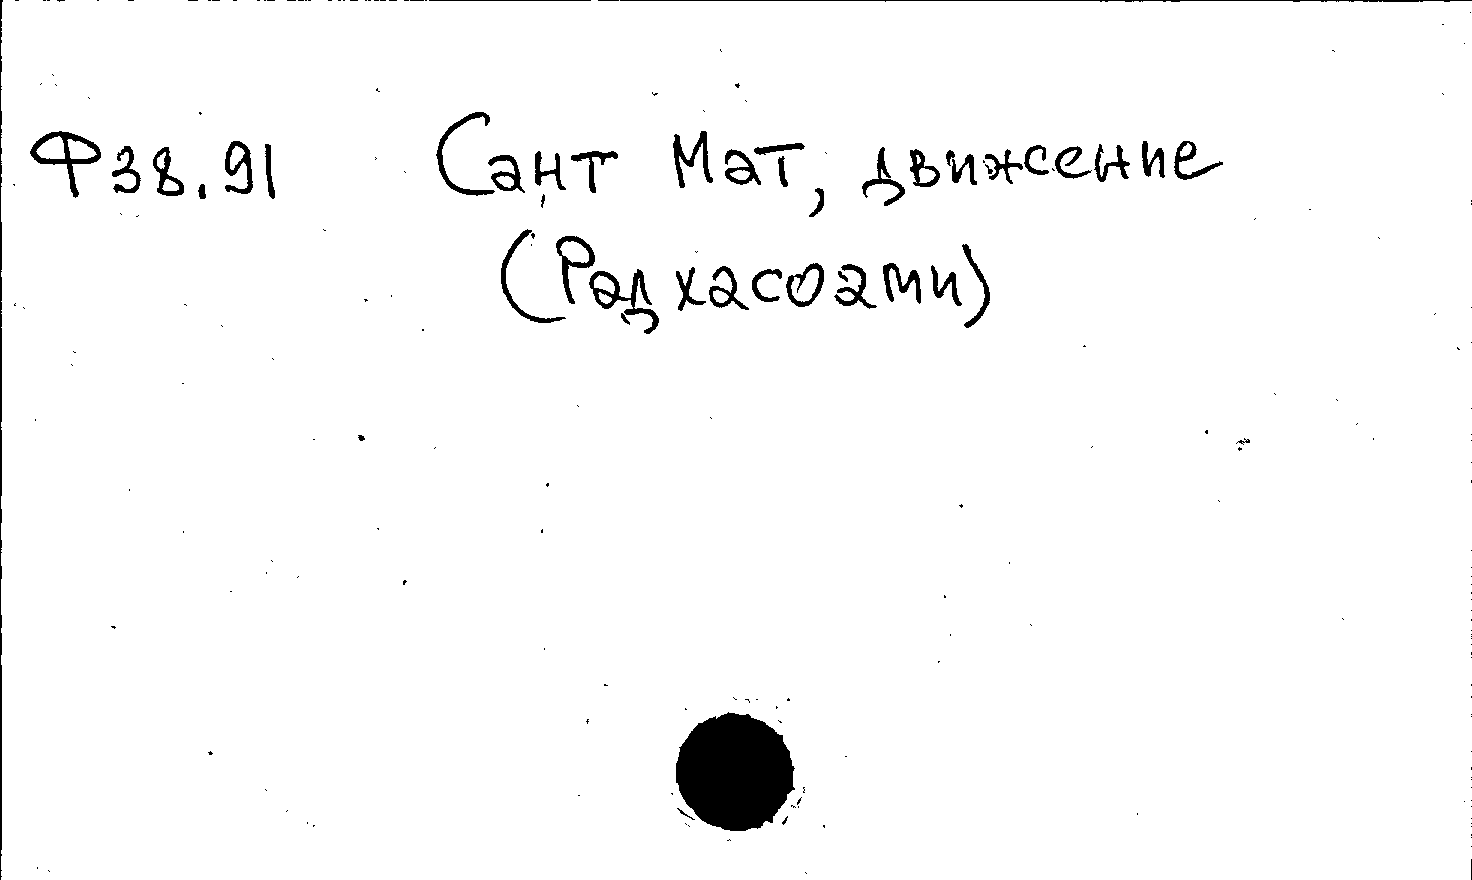 Ф38.91 Сант Мат, движение
(Радхасоами)